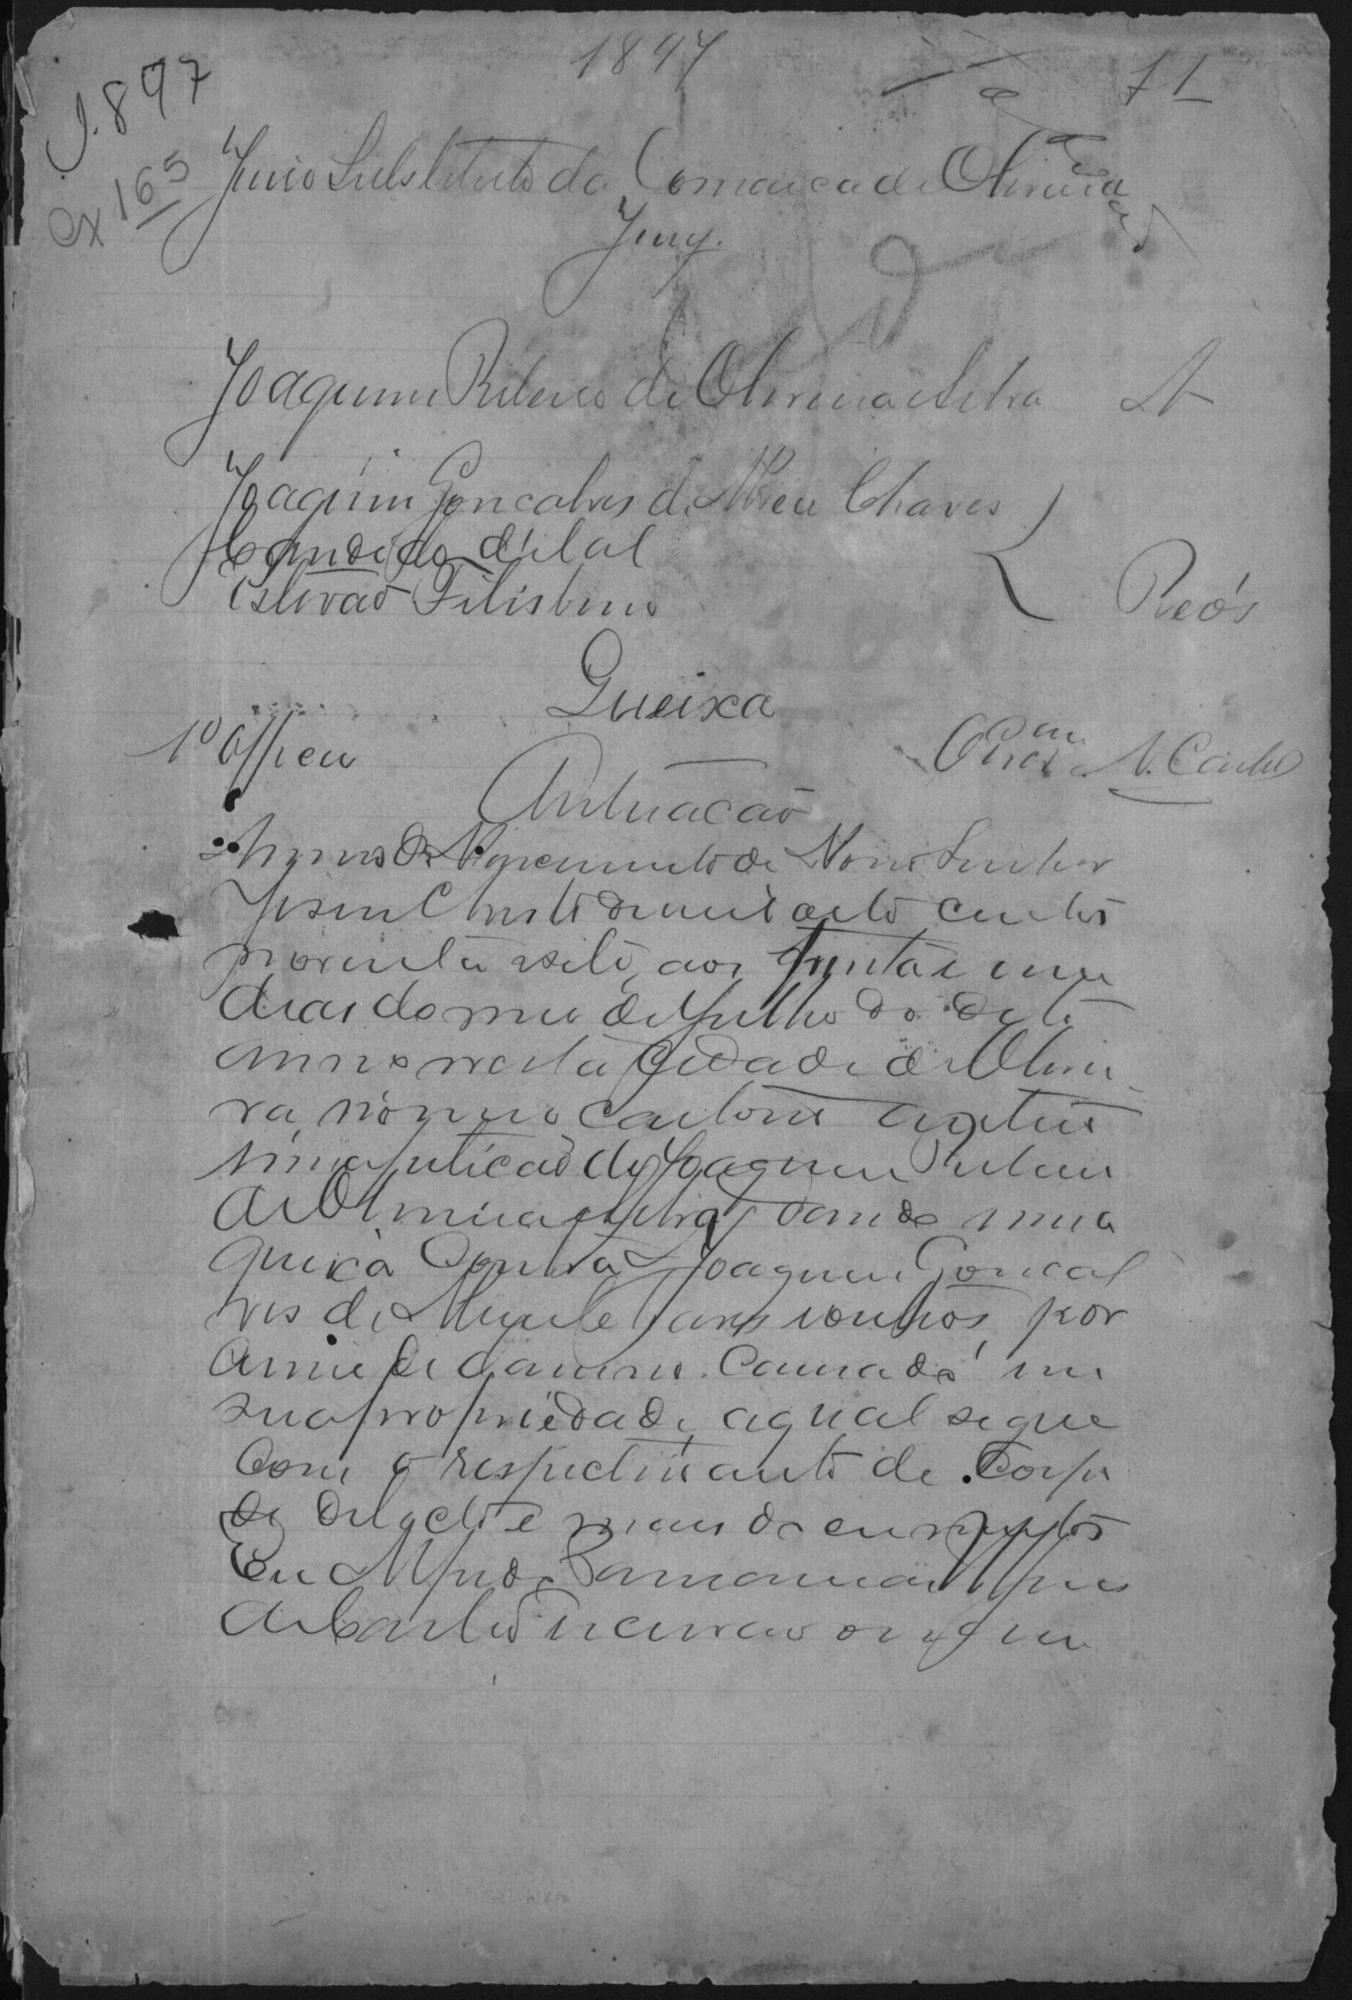 1897
1897
71
Cx 165
Juizo Substituto da Comarca de Oliveira
Jury.
Joaquim Ribeiro de Oliveira e Silva A
Joaquim Gonçalves de Abreu Chaves
Candido de tal
Estevão Felisbino
Reós
Queixa
1º Officio
Autuacão
Anno do Nascimento de Nosso Senhor
Jesus Christo de mil oito centos
noventa e sete, aos trinta e um
dias do mez de Julho do dito
anno nesta Cidade de Olivei
ra, em meu cartorio autuei
uma petição de Joaquim Ribeiro
de Oliveira e Silva dando uma
queixa contra Joaquim Gonçal
ves de Chaves e outros, por
crime de damno causado em
sua propriedade, a qual segue
com o respectivo auto de Corpo
de delicto e mais documentos
Eu
de Castro Escrivão